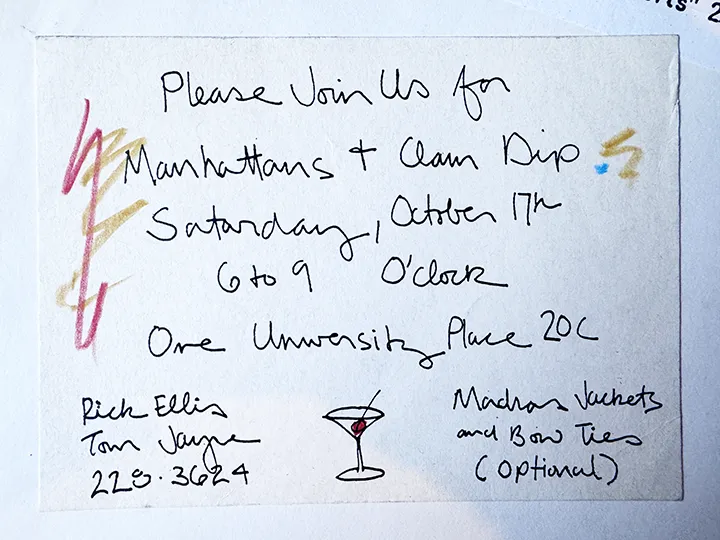 Please Join Us for
Manhattans + Clam Dip
Saturday, October 17th
6 to 9 O'Clock
One University Place 20C
Rick Ellis
Tom Jayne
228.3624
Madras Jackets
and Bow Ties
(Optional)